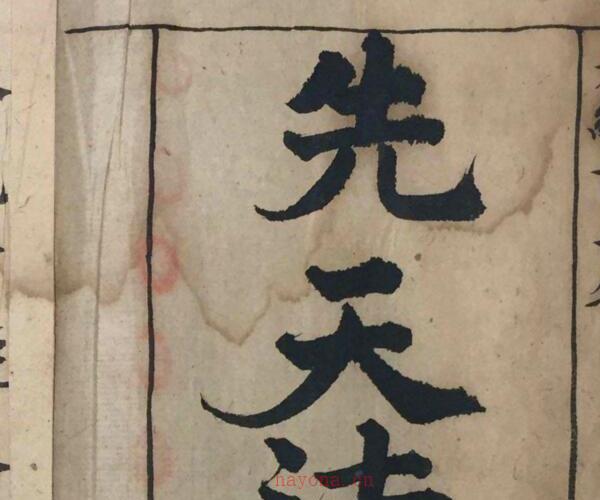 先天法
nayona.cn